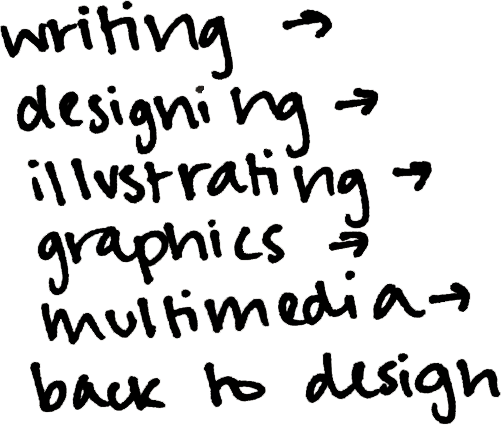 writing →
designing →
illustrating →
graphics →
multimedia →
back to design